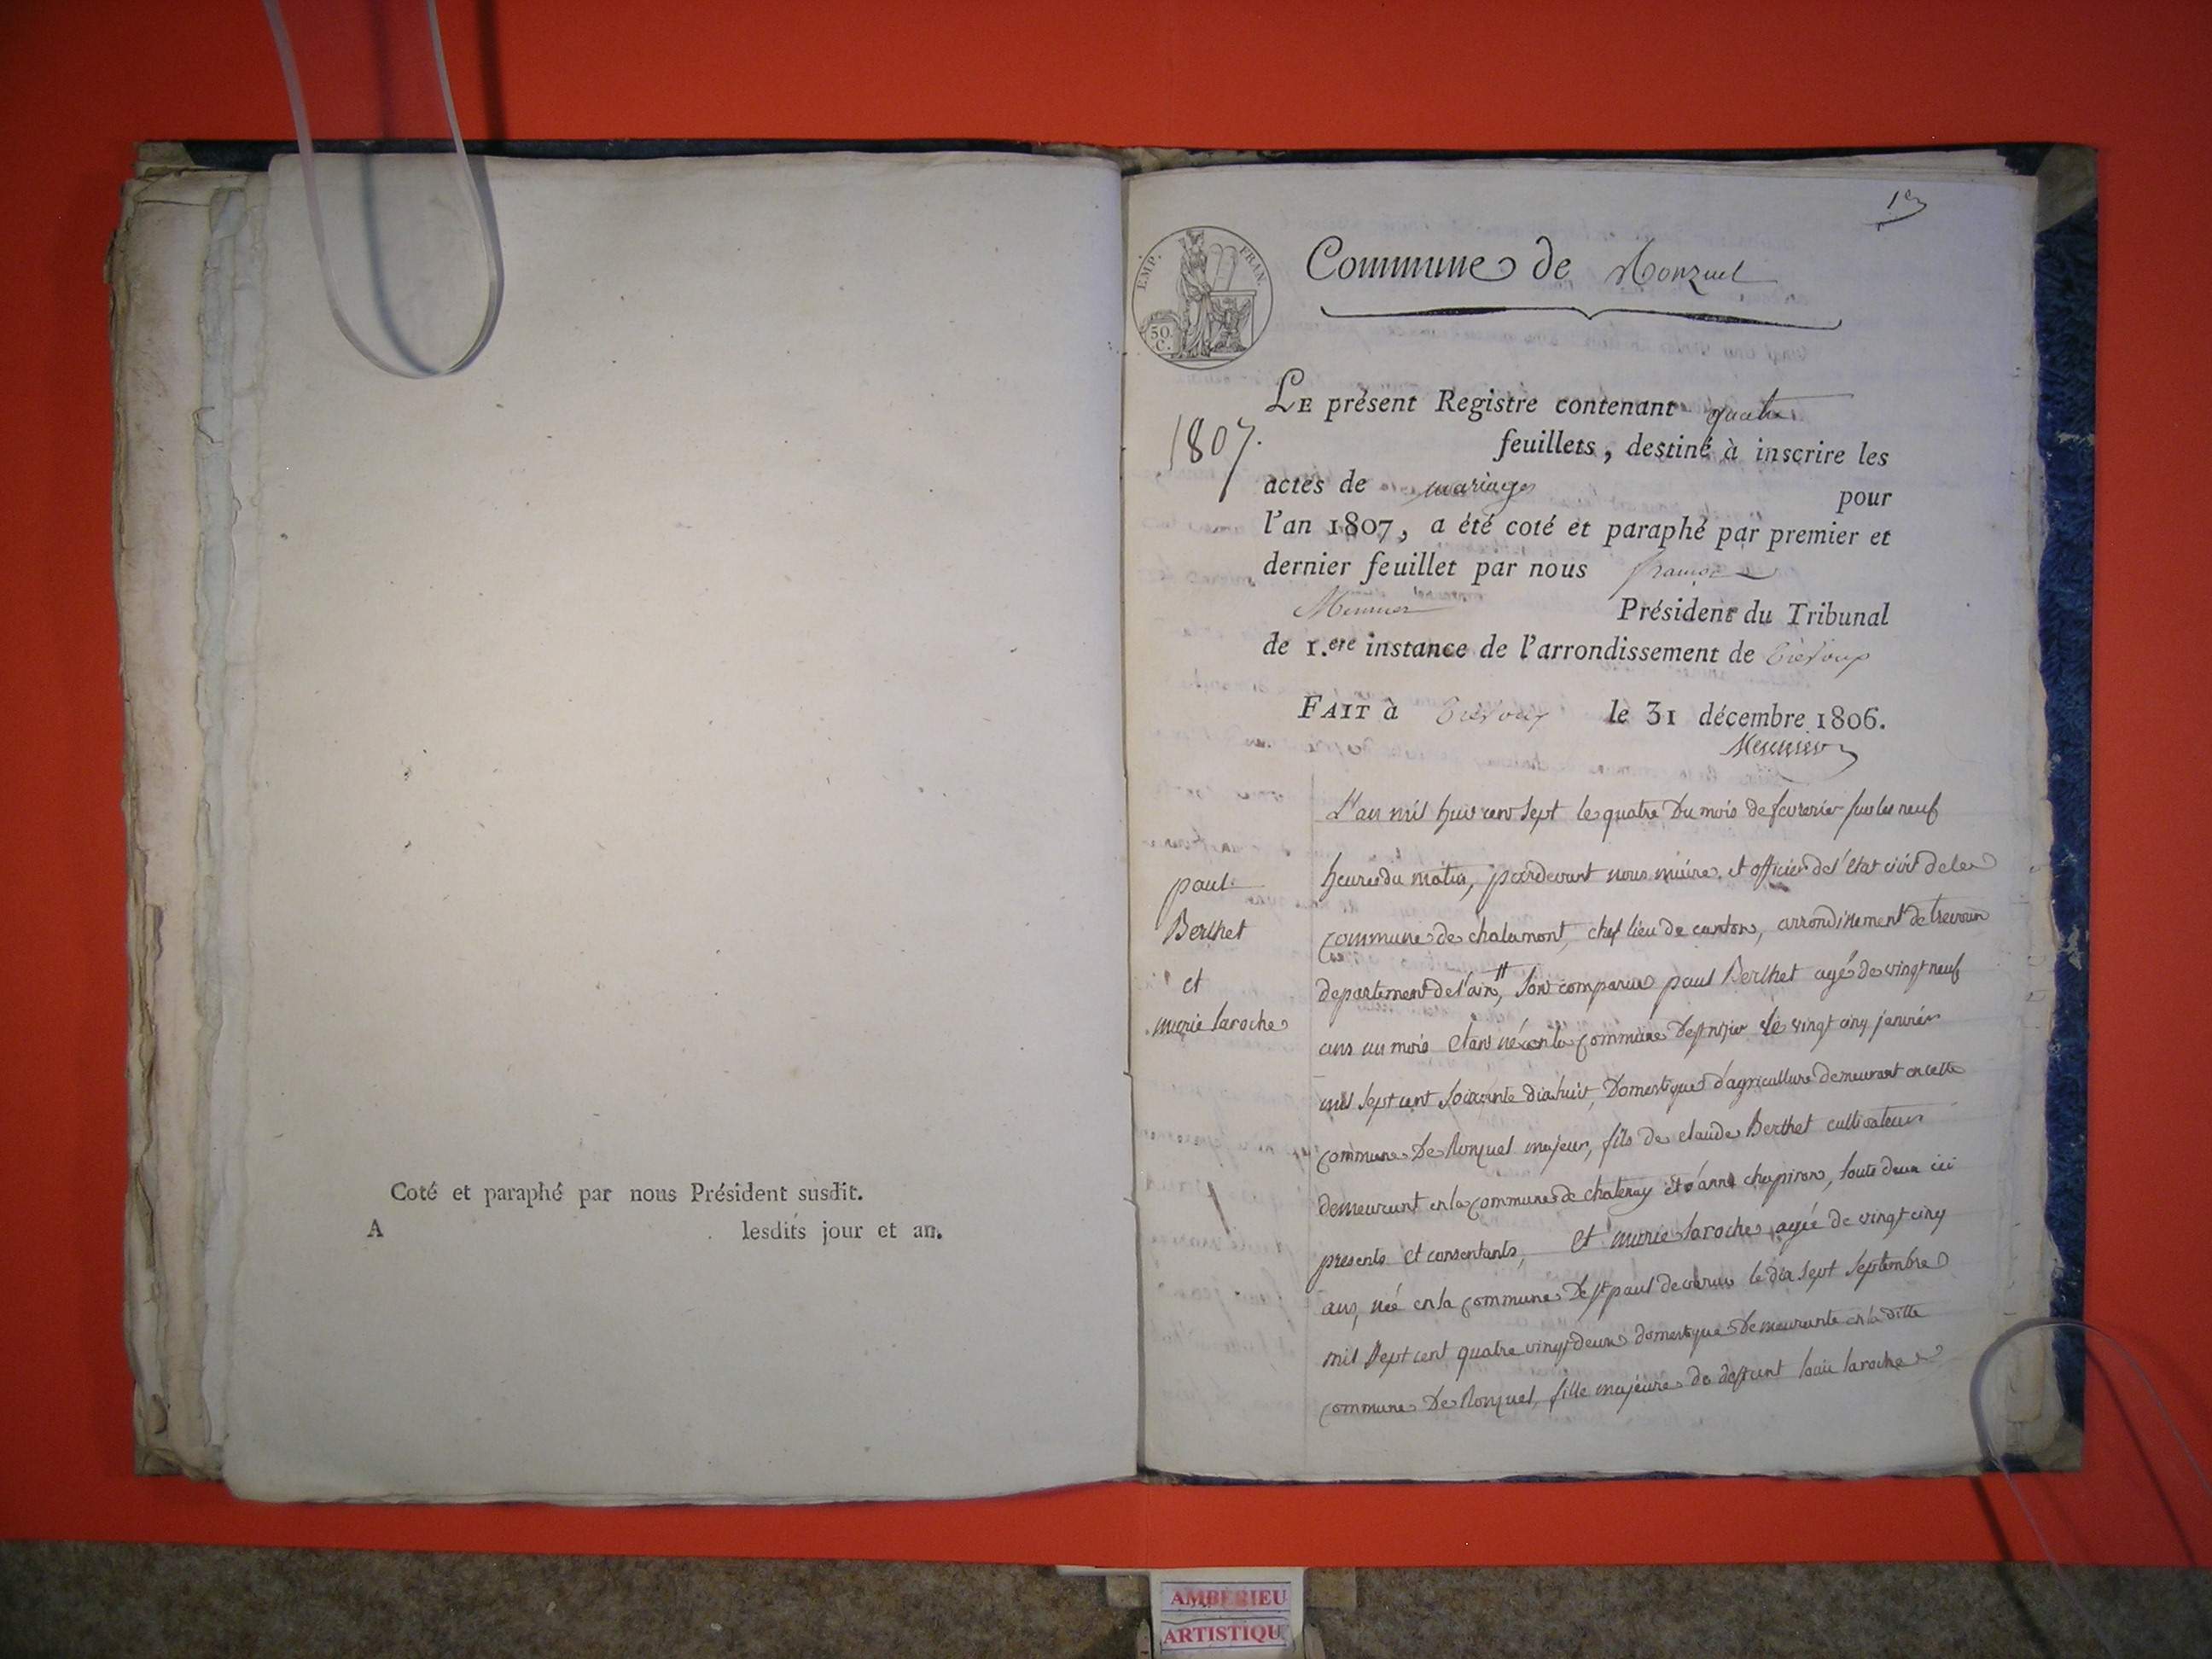 Coté et paraphé par nous Président susdit.
A lesdits jour et an.
1er
EMP. FRAN.
50 C.
Commune de Ronzuel
LE présent Registre contenant quatre
feuillets, destiné à inscrire les
1807.
actes de mariages pour
l'an 1807, a été coté et paraphé par premier et
dernier feuillet par nous
Président du Tribunal
de 1.ere instance de l'arrondissement de Trévoux
FAIT à Trévoux le 31 décembre 1806.
L'an mil huit cent sept le quatre Du mois de fevrier sur les neuf
heures du matin, pardevant nous maire et officier de l'état civil de la
commune de chalamont, chef lieu de canton, arrondissement de trevoux
departement de l'ain, sont comparus paul Berthet agé de vingt neuf
ans un mois etant né en la commune De le vingt cinq janvier
mil sept cent soixante dix huit, Domestique d'agriculture demeurant en cette
commune De Ronzuel majeur, fils de claude Berthet cultivateur
demeurant en la commune de chatenay et d'anne chapiron, toute deux ici
presents et consentants, et marie laroche agée de vingt cinq
ans, née en la commune De st paul de varax le dix sept septembre
mil sept cent quatre vingt deux domestique Demeurante en la ditte
commune De Ronzuel, fille majeure de deffunt laroche
paul
Berthet
et
marie laroche
AMBERIEU
ARTISTIQU